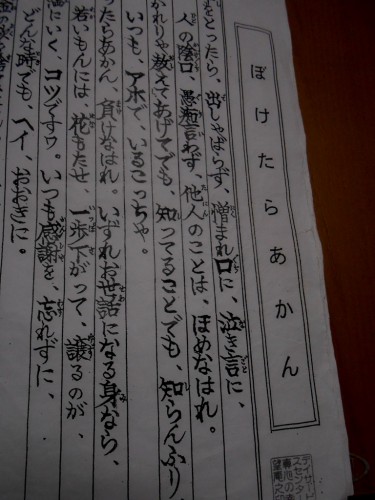 ぼけたらあかん
とったら、出しゃばらず、憎まれ口に、泣き言に、
人の陰口、愚痴言わず、他人のことは、ほめなはれ。
かれりゃ教えてあげてでも、知ってることでも、知らんふり
いつも、アホで、いるこっちゃ。
ったらあかん、負けなはれ。いずれお世話になる身なら、
若いもんには、花もたせ、一歩下がって、譲るのが、
満にいく、コツですワ。いつも感謝を、忘れずに、
どんな時でも、ヘイ、おおきに。
デイサー
スセンタ